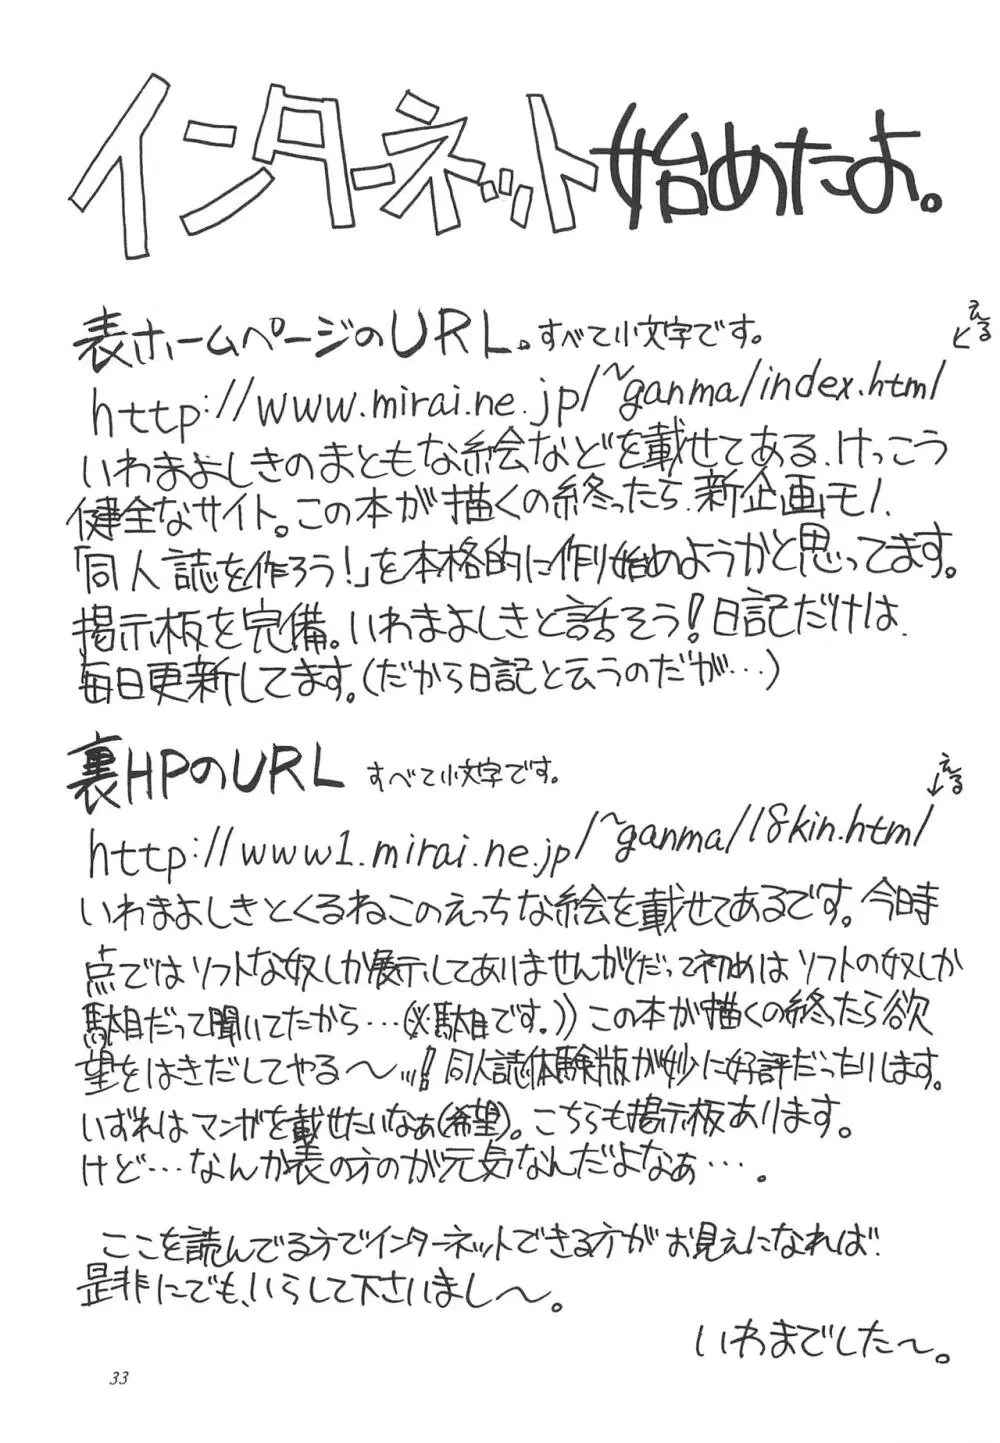 インターネット始めたよ。
表ホームページのURL。すべて小文字です。
える
http://www.mirai.ne.jp/~ganma/index.html
いわまよしきのまともな絵などを載せてある、けっこう
健全なサイト。この本が描くの終ったら、新企画モノ、
「同人誌を作ろう!」を本格的に作り始めようかと思ってます。
掲示板を完備。いわまよしきと話そう!日記だけは、
毎日更新してます。(だから日記と云うのだが…)
裏HPのURL すべて小文字です。
える
http://www1.mirai.ne.jp/~ganma/18kin.html
いわまよしきとくるねこのえっちな絵を載せてあるです。今日時
点ではソフトな奴しか展示してありませんがだって初めはソフトの奴しか
駄目だって聞いてたから…(※駄目です。))この本が描くの終ったら欲
望をはきだしてやる〜!!同人誌体験版が妙に好評だったりします。
いずれはマンガを載せたいなぁ(希望)。こちらも掲示板あります。
けど…なんか表の方のが元気なんだよなぁ…。
ここを読んでる方でインターネットできる方がお見えになれば、
是非にでも、いらして下さいまし〜。
いわまでした〜。
33